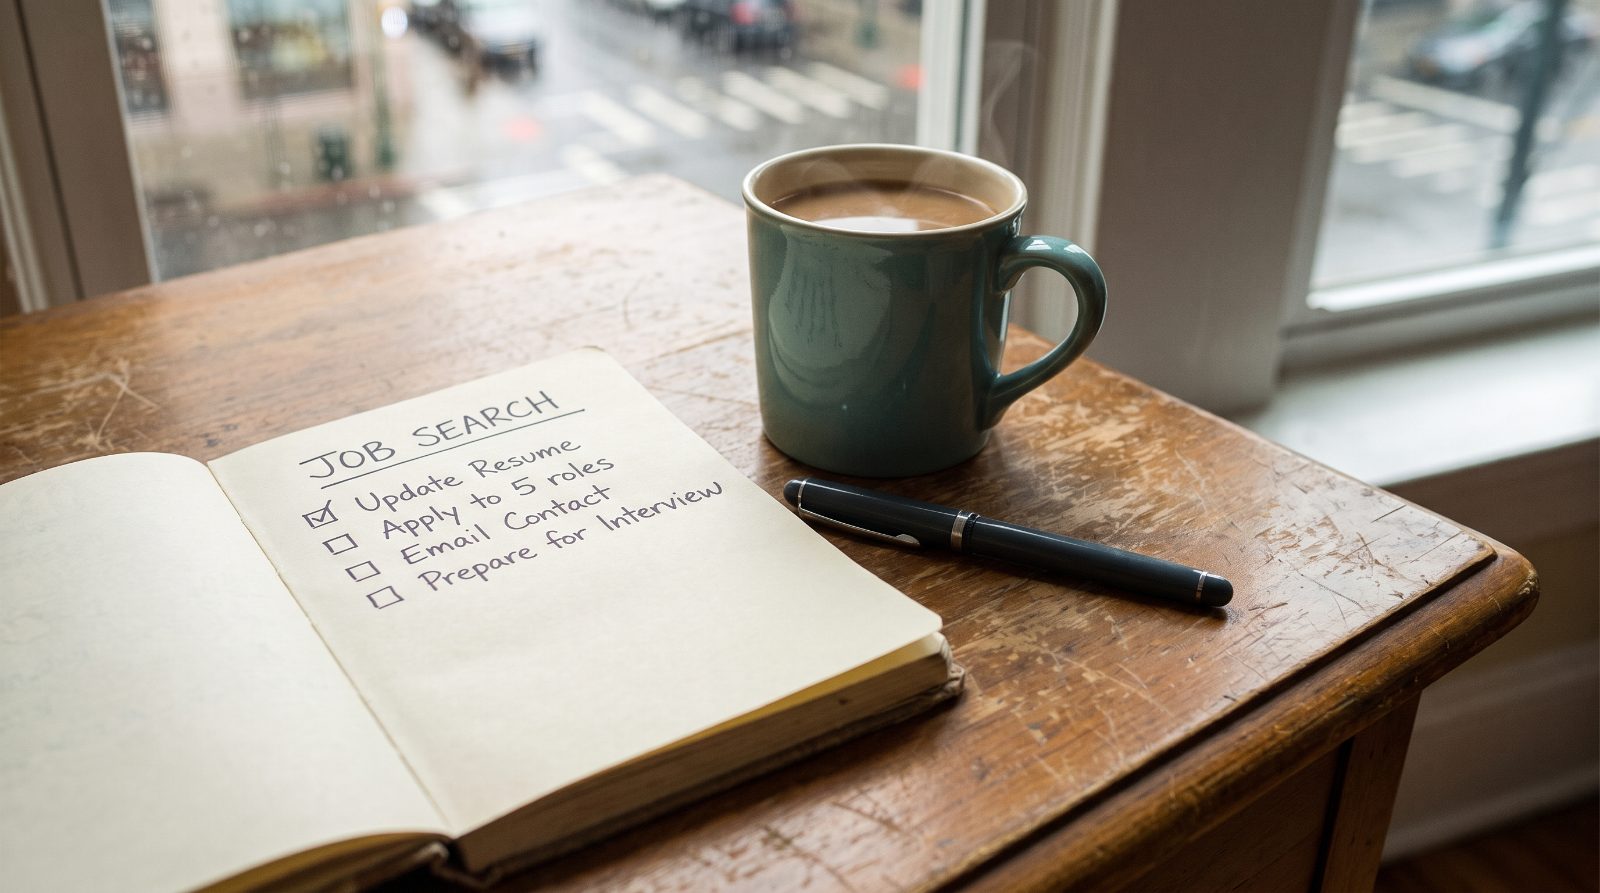 JOB SEARCH
☑ Update Resume
☐ Apply to 5 roles
☐ Email Contact
☐ Prepare for Interview